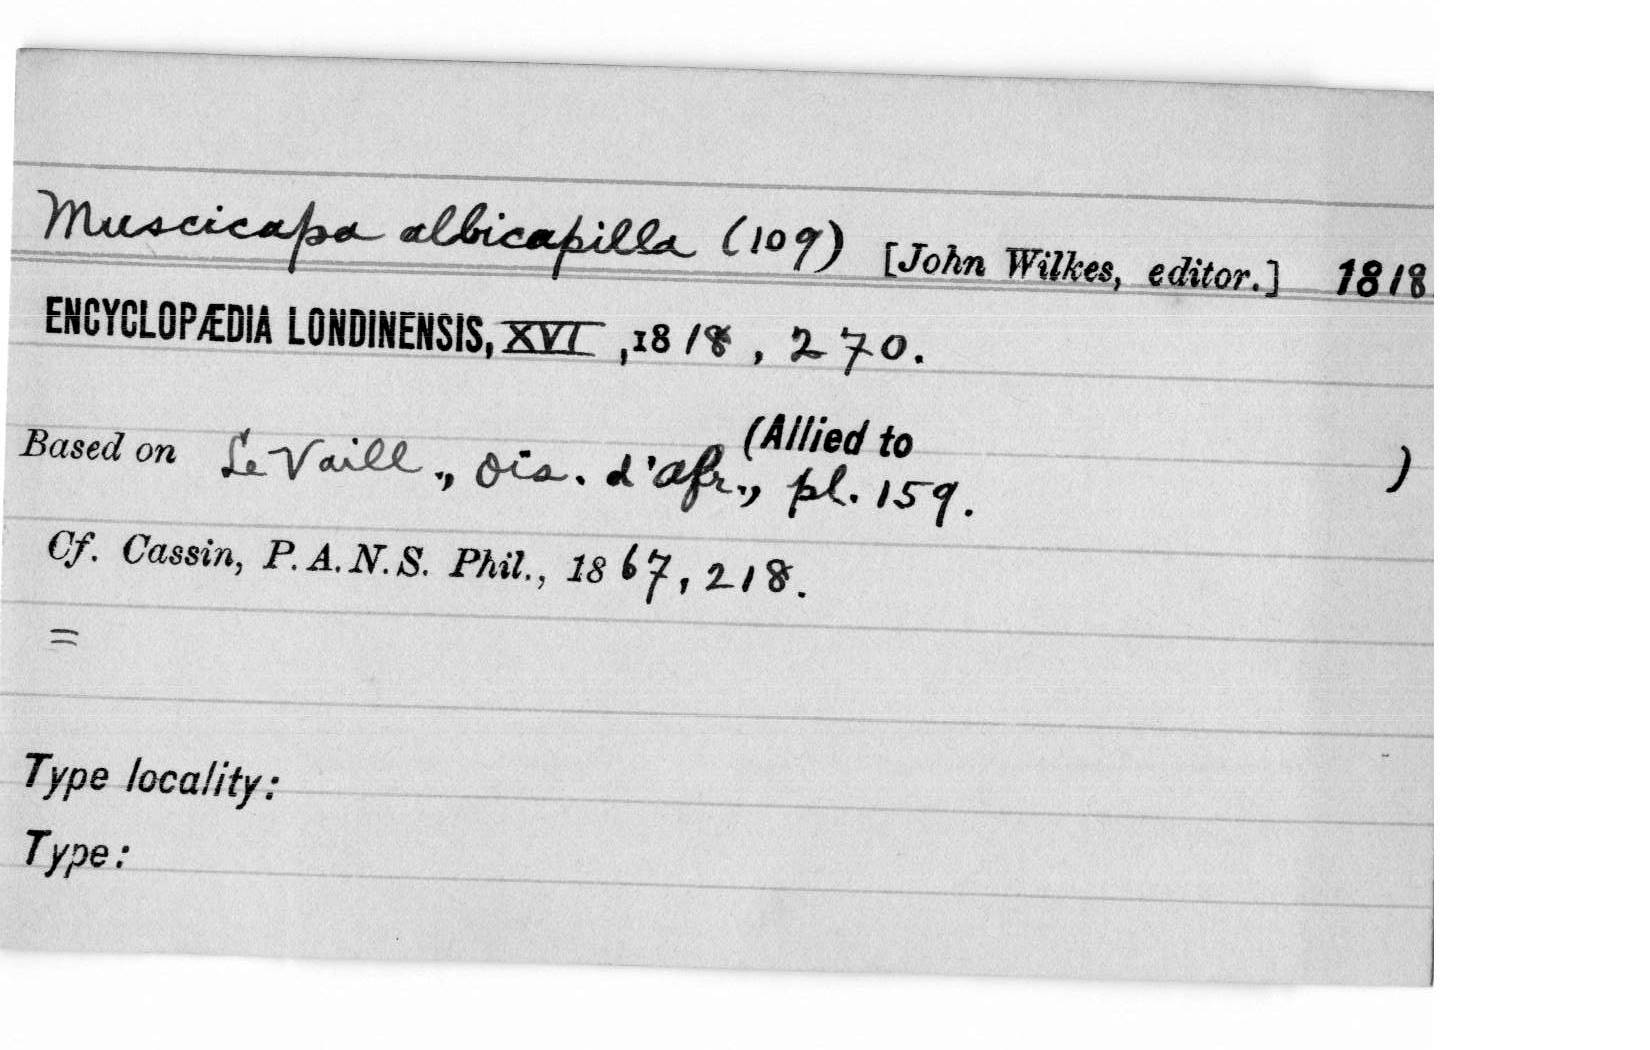 Muscicapa albicapilla (109) [John Wilkes, editor.] 1818
ENCYCLOPÆDIA LONDINENSIS, XVI, 1818, 270.
(Allied to )
Based on LeVaill., Ois. d'Afr., pl. 159.
Cf. Cassin, P. A. N. S. Phil., 1867, 218.
=
Type locality:
Type: